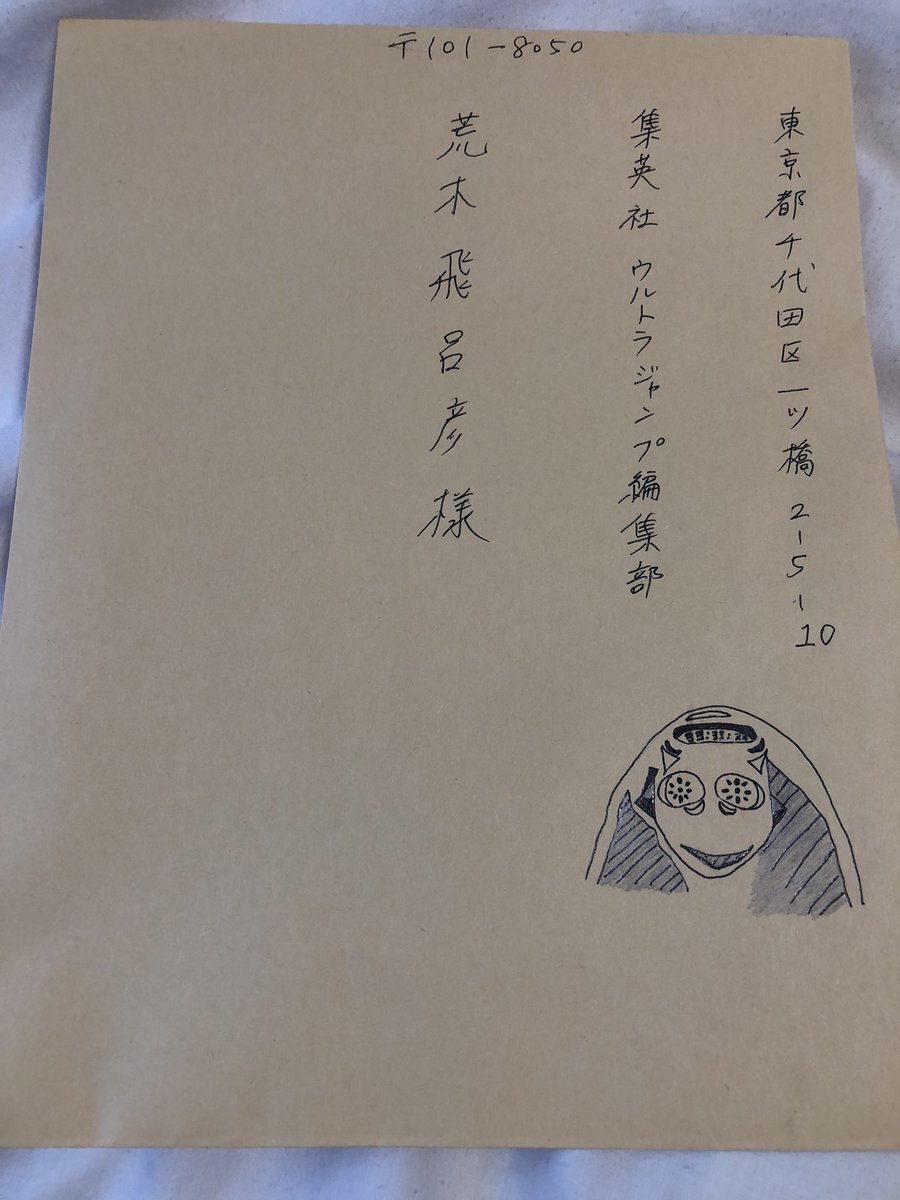 〒101-8050
東京都千代田区一ツ橋2-5-10
集英社 ウルトラジャンプ編集部
荒木飛呂彦様